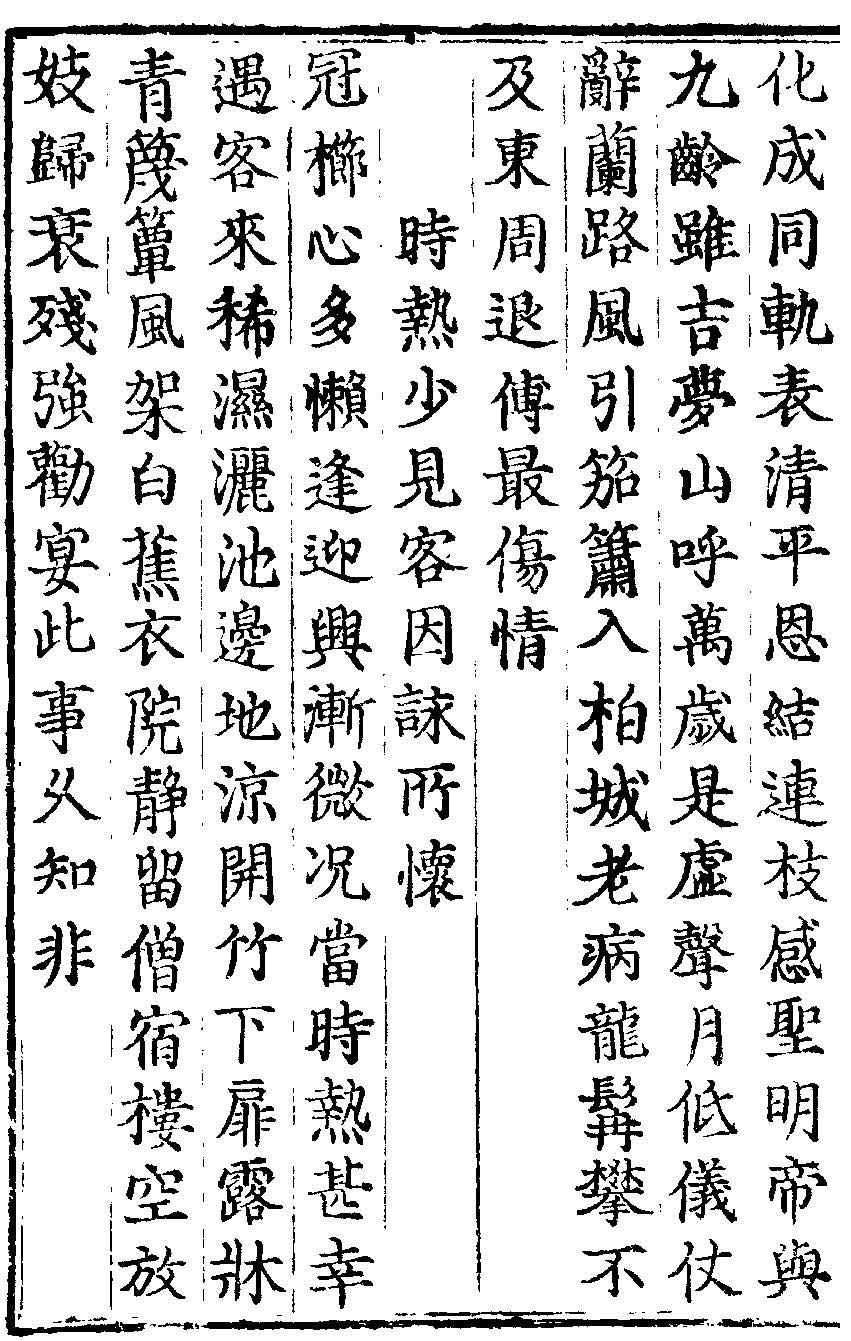 化成同軌表清平恩結連枝感聖明帝與
九齡雖吉夢山呼萬歲是虛聲月低儀仗
辭蘭路風引笳簫入柏城老病龍髯攀不
及東周退傅最傷情
時熱少見客因詠所懷
冠櫛心多懶逢迎興漸微况當時熱甚幸
遇客來稀濕灑池邊地涼開竹下扉露牀
青篾簟風架白蕉衣院静留僧宿樓空放
妓歸衰殘強勸宴此事久知非